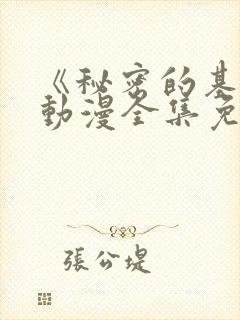 《秘密的基
动漫全集免
張公堤